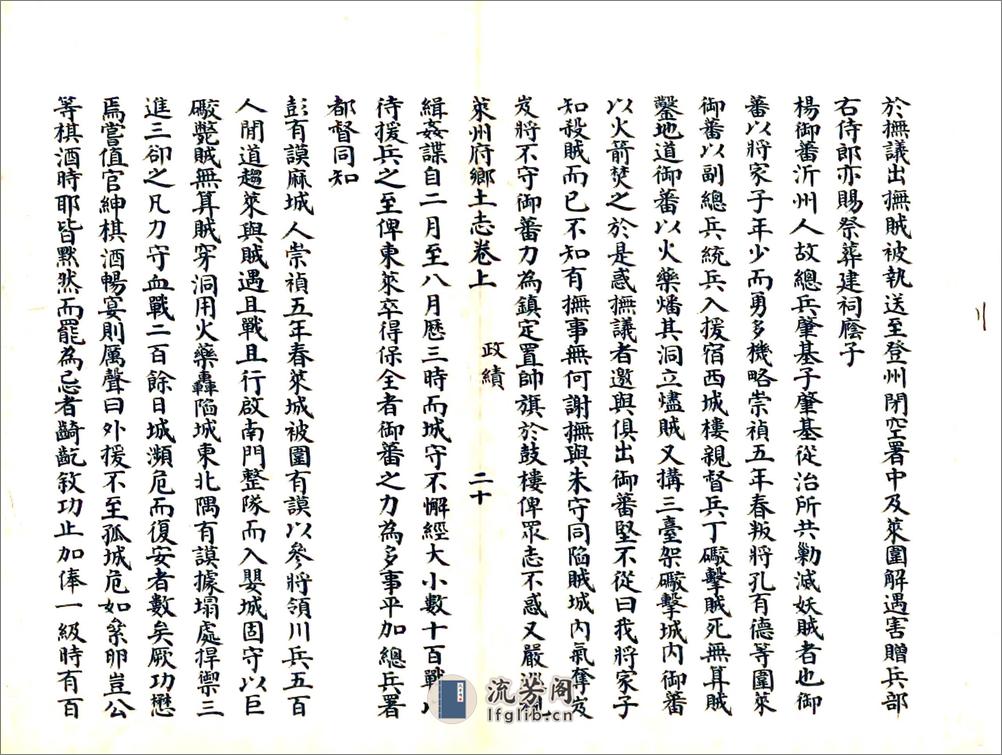 於撫議出撫賊被執送至登州閉空署中及萊圍解遇害贈兵部
右侍郎亦賜祭葬建祠廕子
楊御蕃沂州人故總兵肇基子肇基從治所共勦滅妖賊者也御
蕃以將家子年少而勇多機略崇禎五年春叛將孔有德等圍萊
御蕃以副總兵統兵入援宿西城樓親督兵丁礮擊賊死無算賊
鑿地道御蕃以火藥燔其洞立燼賊又搆三臺架礮擊城內御蕃
以火箭焚之於是惑撫議者邀與俱出御蕃堅不從曰我將家子
知殺賊而已不知有撫事無何謝撫與朱守同陷賊城內氣奪岌
岌將不守御蕃力為鎮定置帥旗於鼓樓俾眾志不惑又嚴
萊州府鄉土志卷上 政績 二十
緝姦諜自二月至八月歷三時而城守不懈經大小數十百戰
待援兵之至俾東萊卒得保全者御蕃之力為多事平加總兵署
都督同知
彭有謨麻城人崇禎五年春萊城被圍有謨以參將領川兵五百
人閒道趨萊與賊遇且戰且行啟南門整隊而入嬰城固守以巨
礮斃賊無算賊穿洞用火藥轟陷城東北隅有謨據塌處捍禦三
進三卻之凡力守血戰二百餘日城瀕危而復安者數矣厥功懋
焉嘗值官紳棋酒暢宴則厲聲曰外援不至孤城危如纍卵豈公
等棋酒時耶皆黙然而罷為忌者齮齕敘功止加俸一級時有百
流芳阁
lfglib.cn